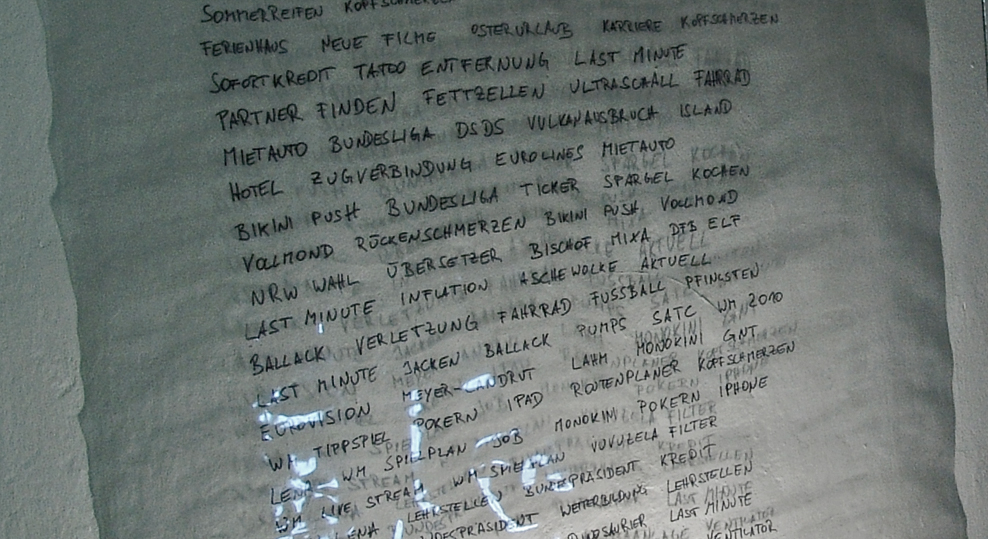 SOMMERREIFEN KOPFSCHMERZEN
FERIENHAUS NEUE FILME OSTERURLAUB KARRIERE KOPFSCHMERZEN
SOFORTKREDIT TATOO ENTFERNUNG LAST MINUTE
PARTNER FINDEN FETTZELLEN ULTRASCHALL FAHRRAD
MIETAUTO BUNDESLIGA DSDS VULKANAUSBRUCH ISLAND
HOTEL ZUGVERBINDUNG EUROLINES MIETAUTO
BIKINI PUSH BUNDESLIGA TICKER SPARGEL KOCHEN
VOLLMOND RÜCKENSCHMERZEN BIKINI PUSH VOLLMOND
NRW WAHL ÜBERSETZER BISCHOF MIXA DFB ELF
LAST MINUTE INFLATION ASCHEWOLKE AKTUELL
BALLACK VERLETZUNG FAHRRAD FUSSBALL PFINGSTEN
LAST MINUTE JACKEN BALLACK PUMPS SATC WM 2010
EUROVISION MEYER-LANDRUT LAHM MONOKINI GNT
WM TIPPSPIEL POKERN IPAD ROUTENPLANER KOPFSCHMERZEN
LENA WM SPIELPLAN JOB MONOKINI POKERN IPHONE
WM LIVE STREAM WM SPIELPLAN VUVUZELA FILTER
LENA LEHRSTELLEN BUNDESPRÄSIDENT KREDIT
WEITERBILDUNG LEHRSTELLEN
LAST MINUTE
VENTILATOR